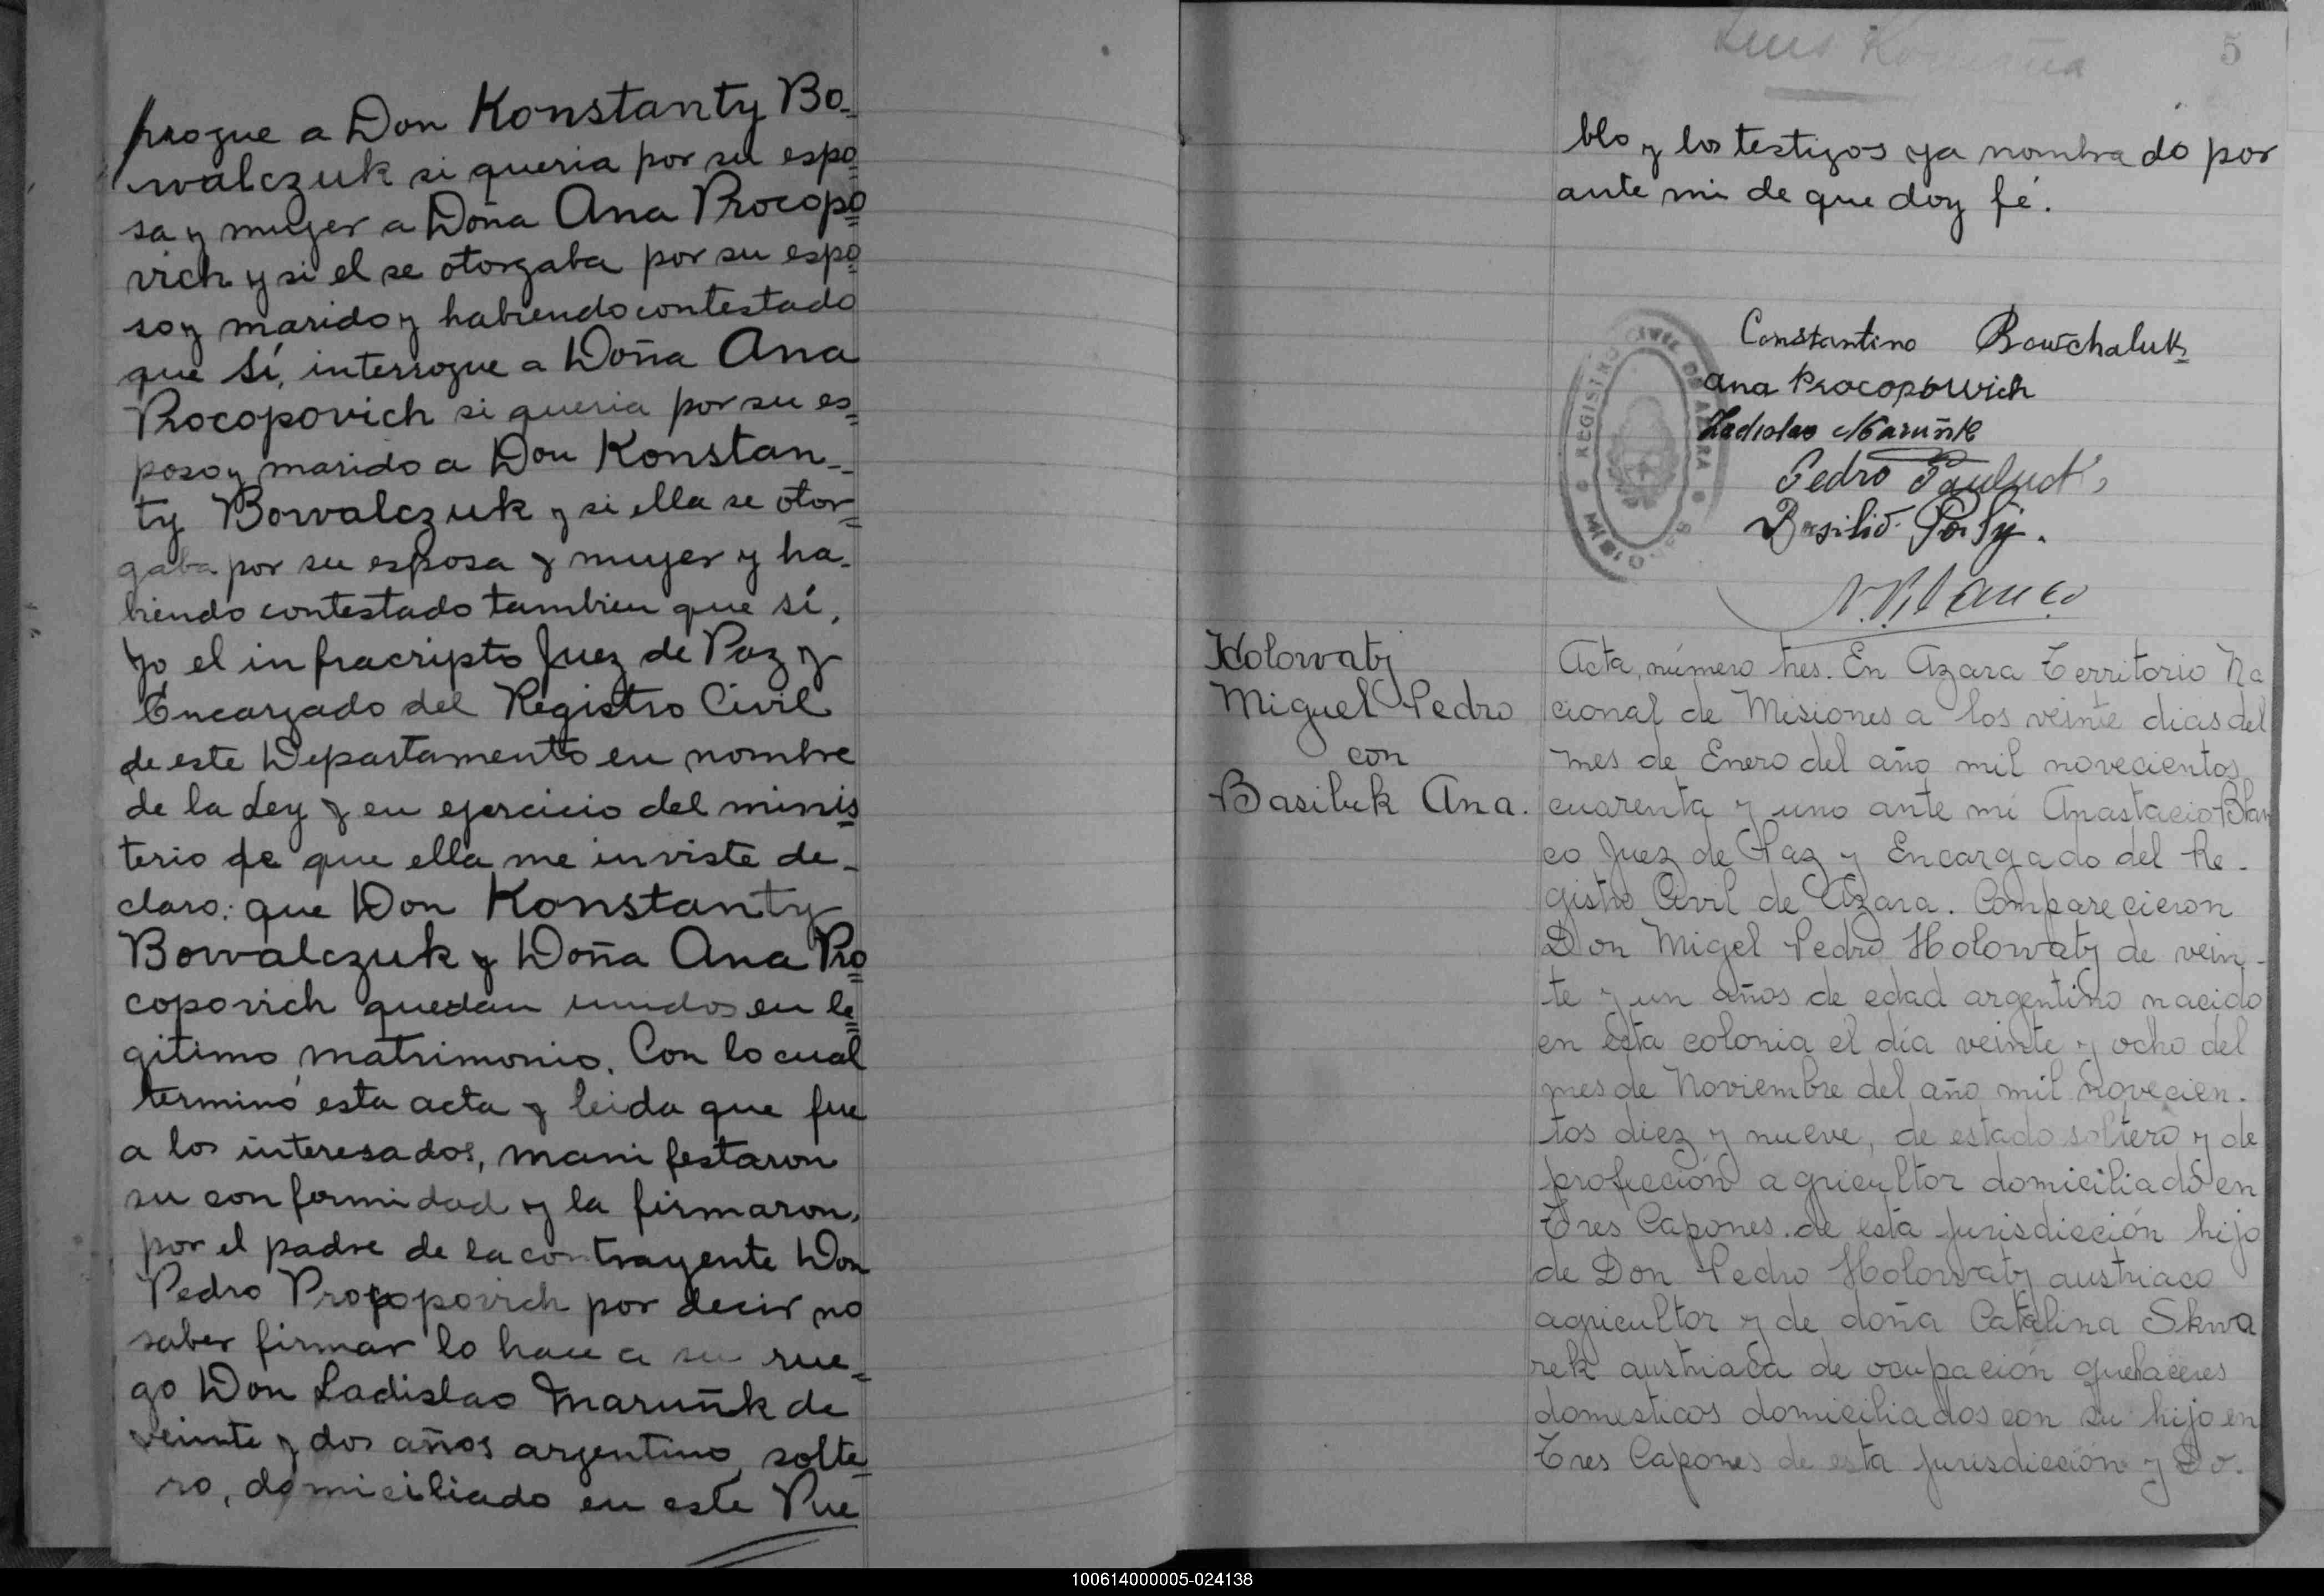 rrogue a Don Konstanty Bo-
walczuk si queria por su espo
sa y mujer a Doña Ana Procopo
vich y si el se otorgaba por su espo
so y marido y habiendo contestado
que Sí, interrogue a Doña Ana
Procopovich si queria por su es=
poso y marido a Don Konstan-
ty Bowalczuk y si ella se otor=
gaba por su esposa y mujer y ha-
biendo contestado tambien que sí,
Yo el infracripto Juez de Paz y
Encargado del Registro Civil
de este Departamento en nombre
de la Ley y en ejercicio del minis
terio de que ella me inviste de-
claro: que Don Konstanty
Bowalczuk y Doña Ana Pro
copovich quedan unidos en le
gitimo matrimonio. Con lo cual
terminó esta acta y leida que fue
a los interesados, manifestaron
su conformidad y la firmaron,
por el padre de la contrayente Don
Pedro Procopovich por decir no
saber firmar lo hace a su rue=
go Don Ladislao Maruñk de
veinte y dos años argentino, solte
ro, domiciliado en este Pue
5
blo y los testigos ya nombrado por
ante mi de que doy fé.
REGISTRO CIVIL DE AZARA
MISIONES
Constantino Bowchaluk
Ana Procopowich
Ladislao Maruñk
Pedro
Basilio
Holowaty
Miguel Pedro
con
Basiluk Ana.
Acta, número tres. En Azara Territorio Na
cional de Misiones a los veinte dias del
mes de Enero del año mil novecientos
cuarenta y uno ante mi Anastacio Blan
co Juez de Paz y Encargado del Re-
gistro Civil de Azara. Comparecieron
Don Migel Pedro Holowaty de vein-
te y un años de edad argentino nacido
en esta colonia el día veinte y ocho del
mes de Noviembre del año mil novecien-
tos diez y nueve, de estado soltero y de
profección agricultor domiciliado en
Tres Capones de esta jurisdicción hijo
de Don Pedro Holowaty austriaco
agricultor y de doña Catalina Skwa
rek austriaca de ocupación quehaceres
domesticos domiciliados con su hijo en
Tres Capones de esta jurisdicción y Do-
100614000005-024138